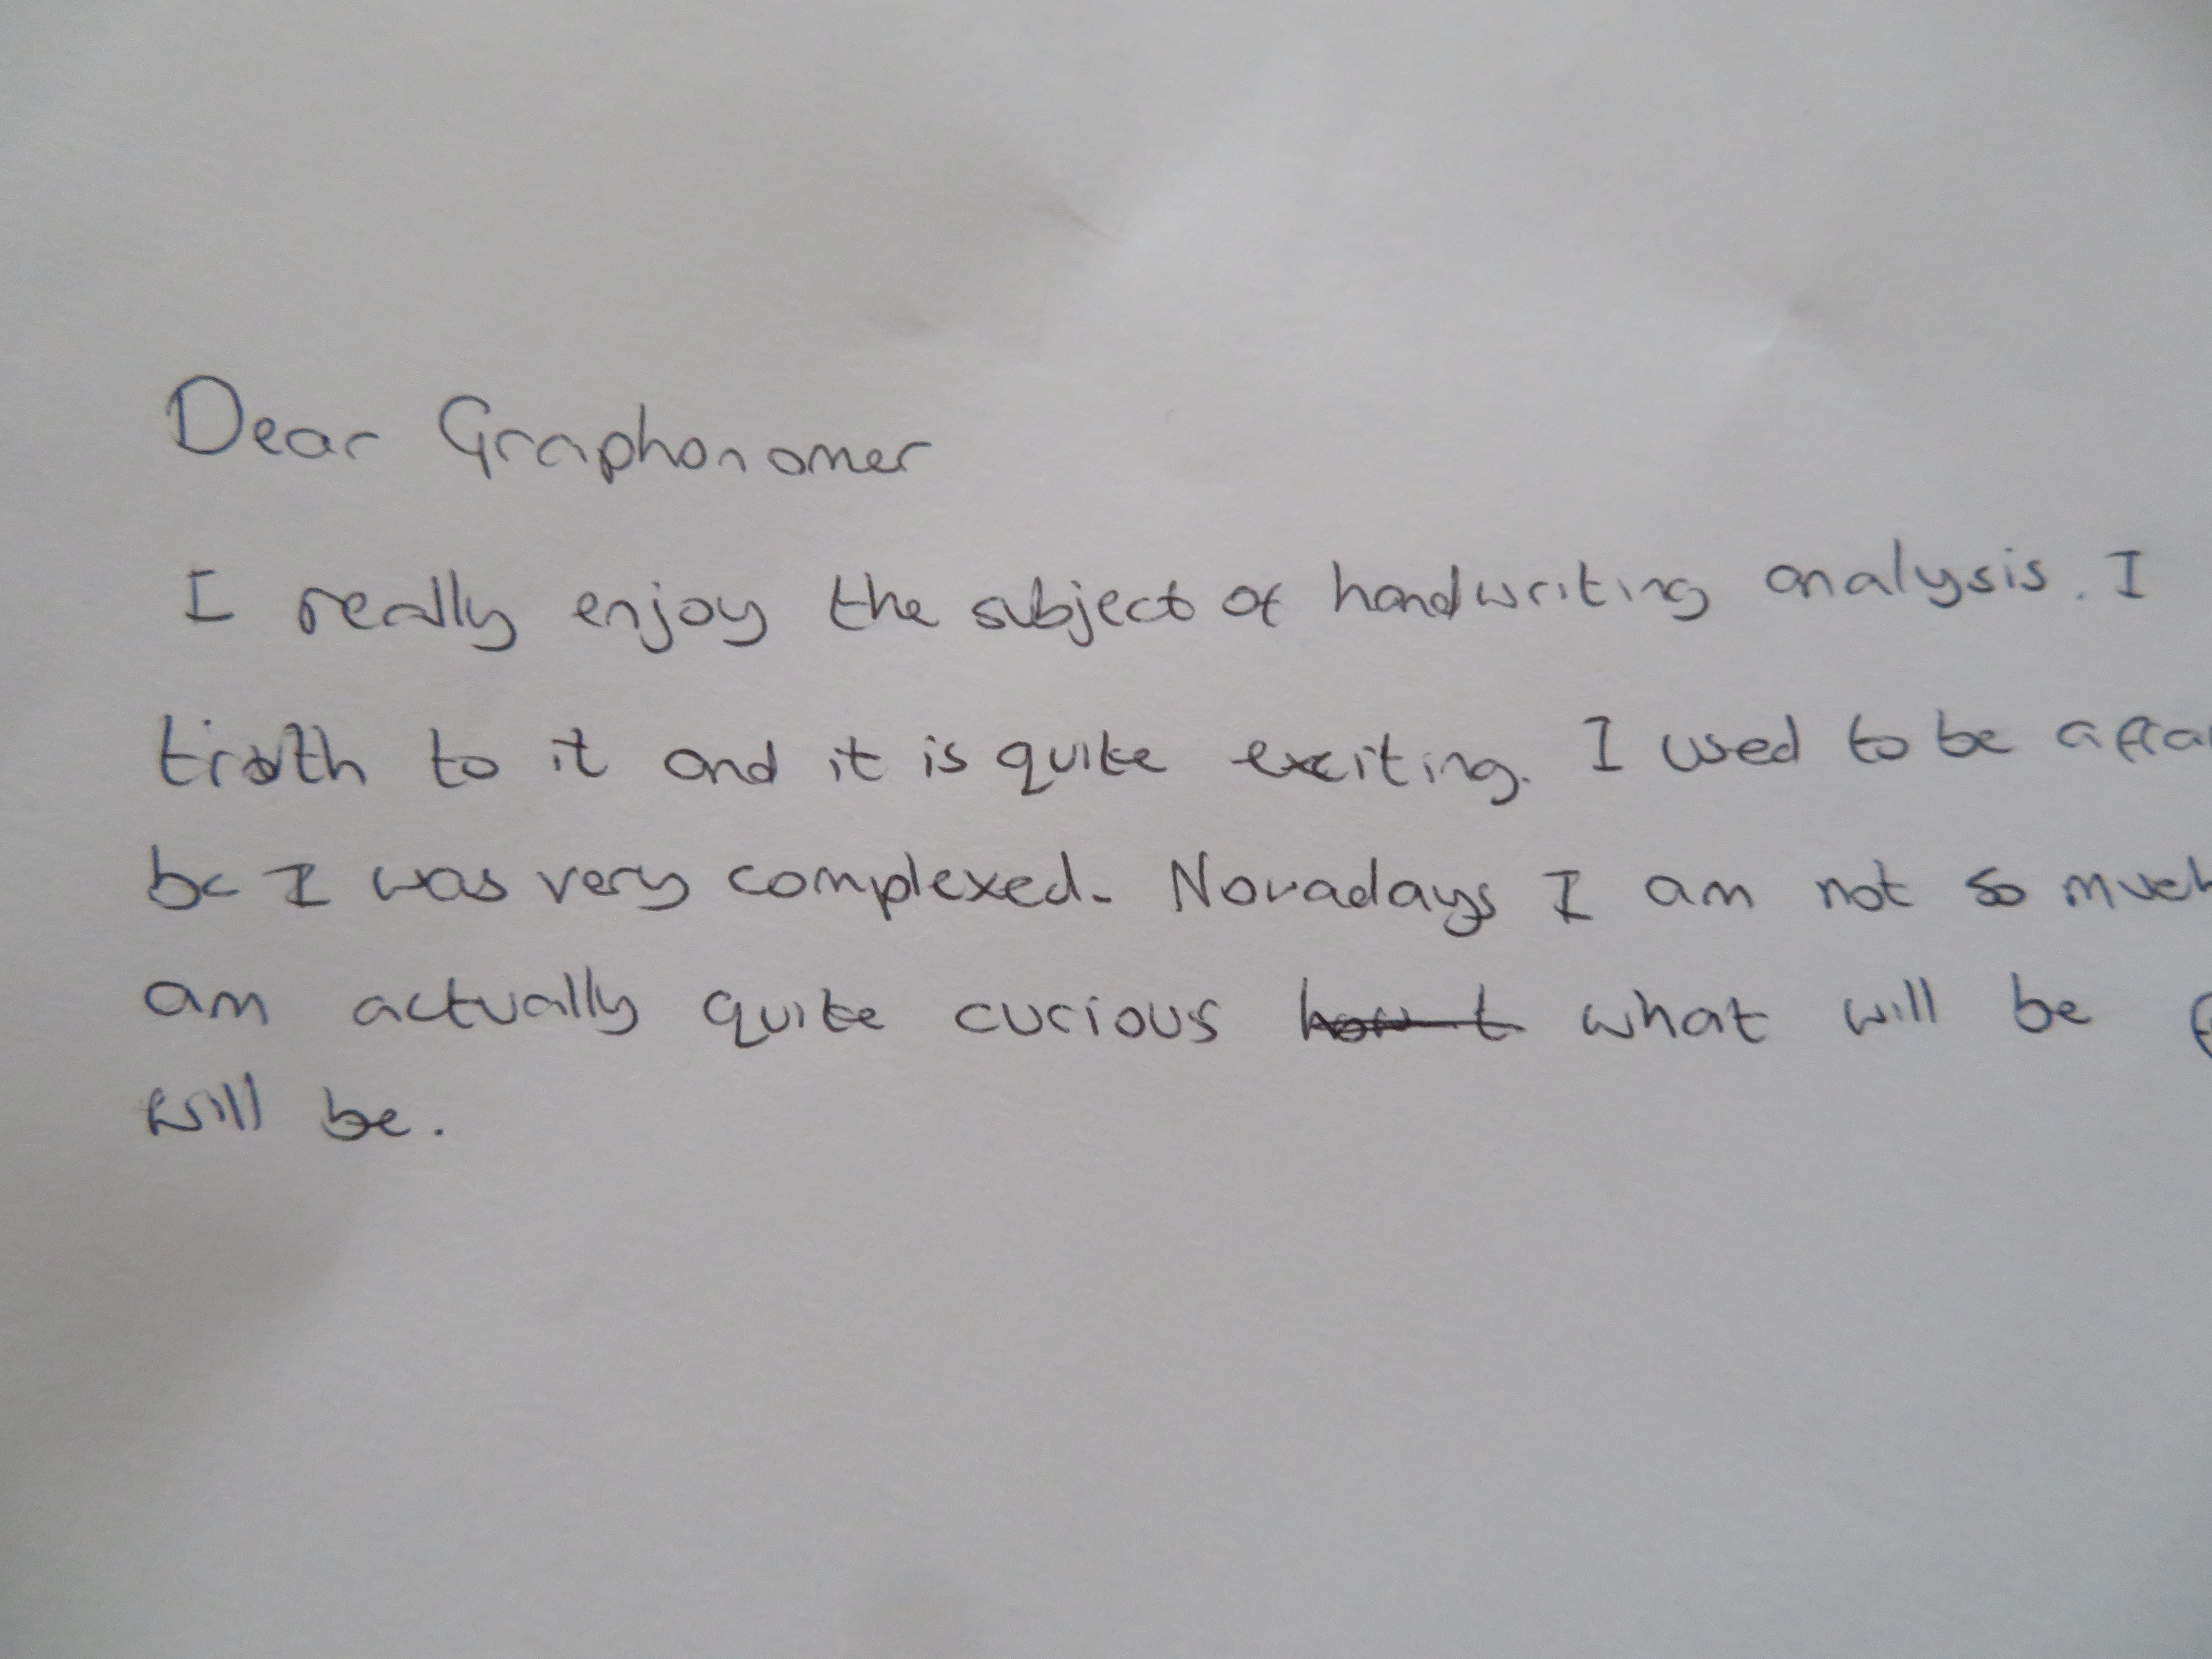 Dear Graphonomer
I really enjoy the subject of handwriting analysis. I
truth to it and it is quite exciting. I used to be afra
bc I was very complexed. Novadays I am not so much
am actually quite curious how t what will be
will be.